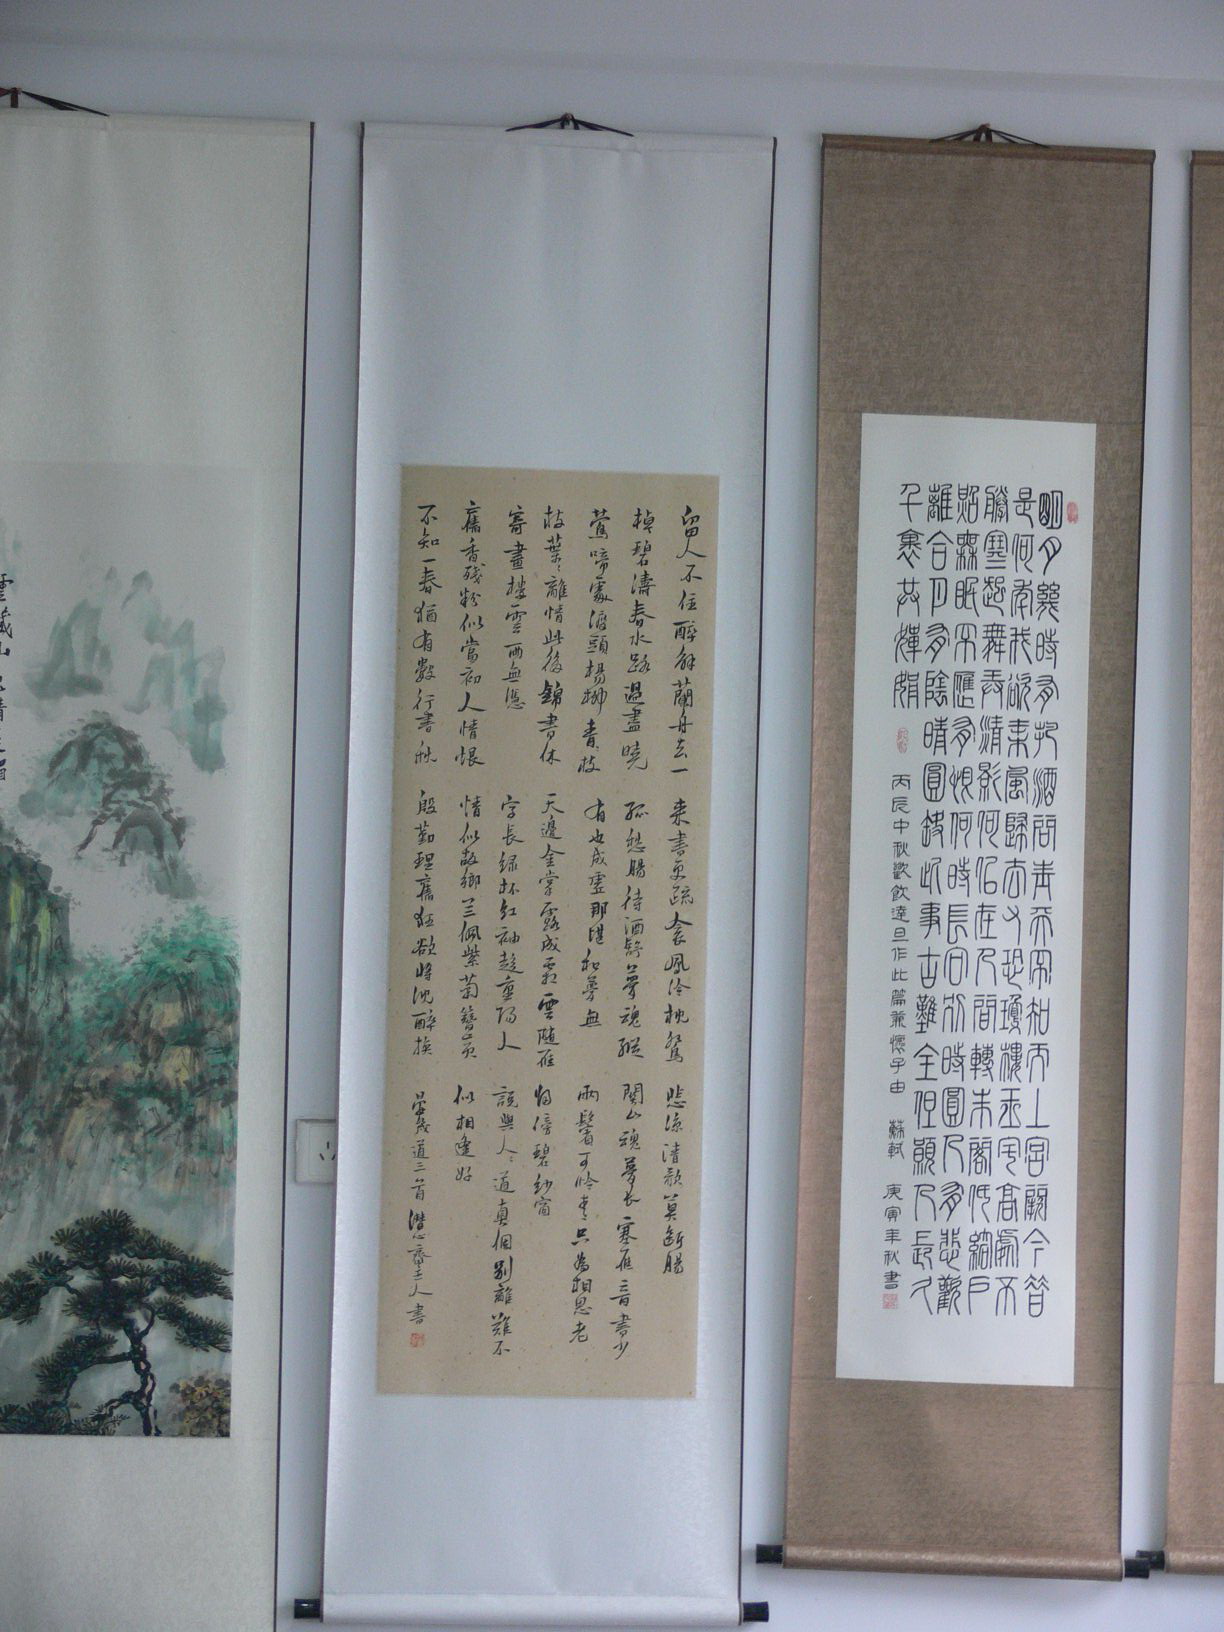 明月幾時有把酒問青天不知天上宮闕今昔
是何年我欲乘風歸去又恐瓊樓玉宇高處不
勝寒起舞弄清影何似在人間轉朱閣低綺戶
照無眠不應有恨何時長向別時圓人有悲歡
離合月有陰晴圓缺此事古難全但願人長久
千裏共嬋娟
丙辰中秋歡飲達旦作此篇兼懷子由 蘇軾 庚寅年秋書
留人不住醉解蘭舟去一
棹碧濤春水路過盡曉
鶯啼處渡頭楊柳青枝
枝葉葉離情此後錦書休
寄畫樓雲雨無憑
舊香殘粉似當初人情恨
不如一春猶有數行書秋
來書更疏衾鳳冷枕鴛
孤愁腸待酒舒夢魂縱
有也成虛那堪和夢無
天邊金掌露成霜雲隨雁
字長綠杯紅袖趁重陽人
情似故鄉兰佩紫菊簪黃
殷勤理舊狂欲將沈醉換
悲涼清歌莫斷腸
關山魂夢長塞雁音書少
兩鬢可憐青只為相思老
歸傍碧紗窗
說與人人道真個別離難不
似相逢好
晏幾道三首 潛心齋主人書